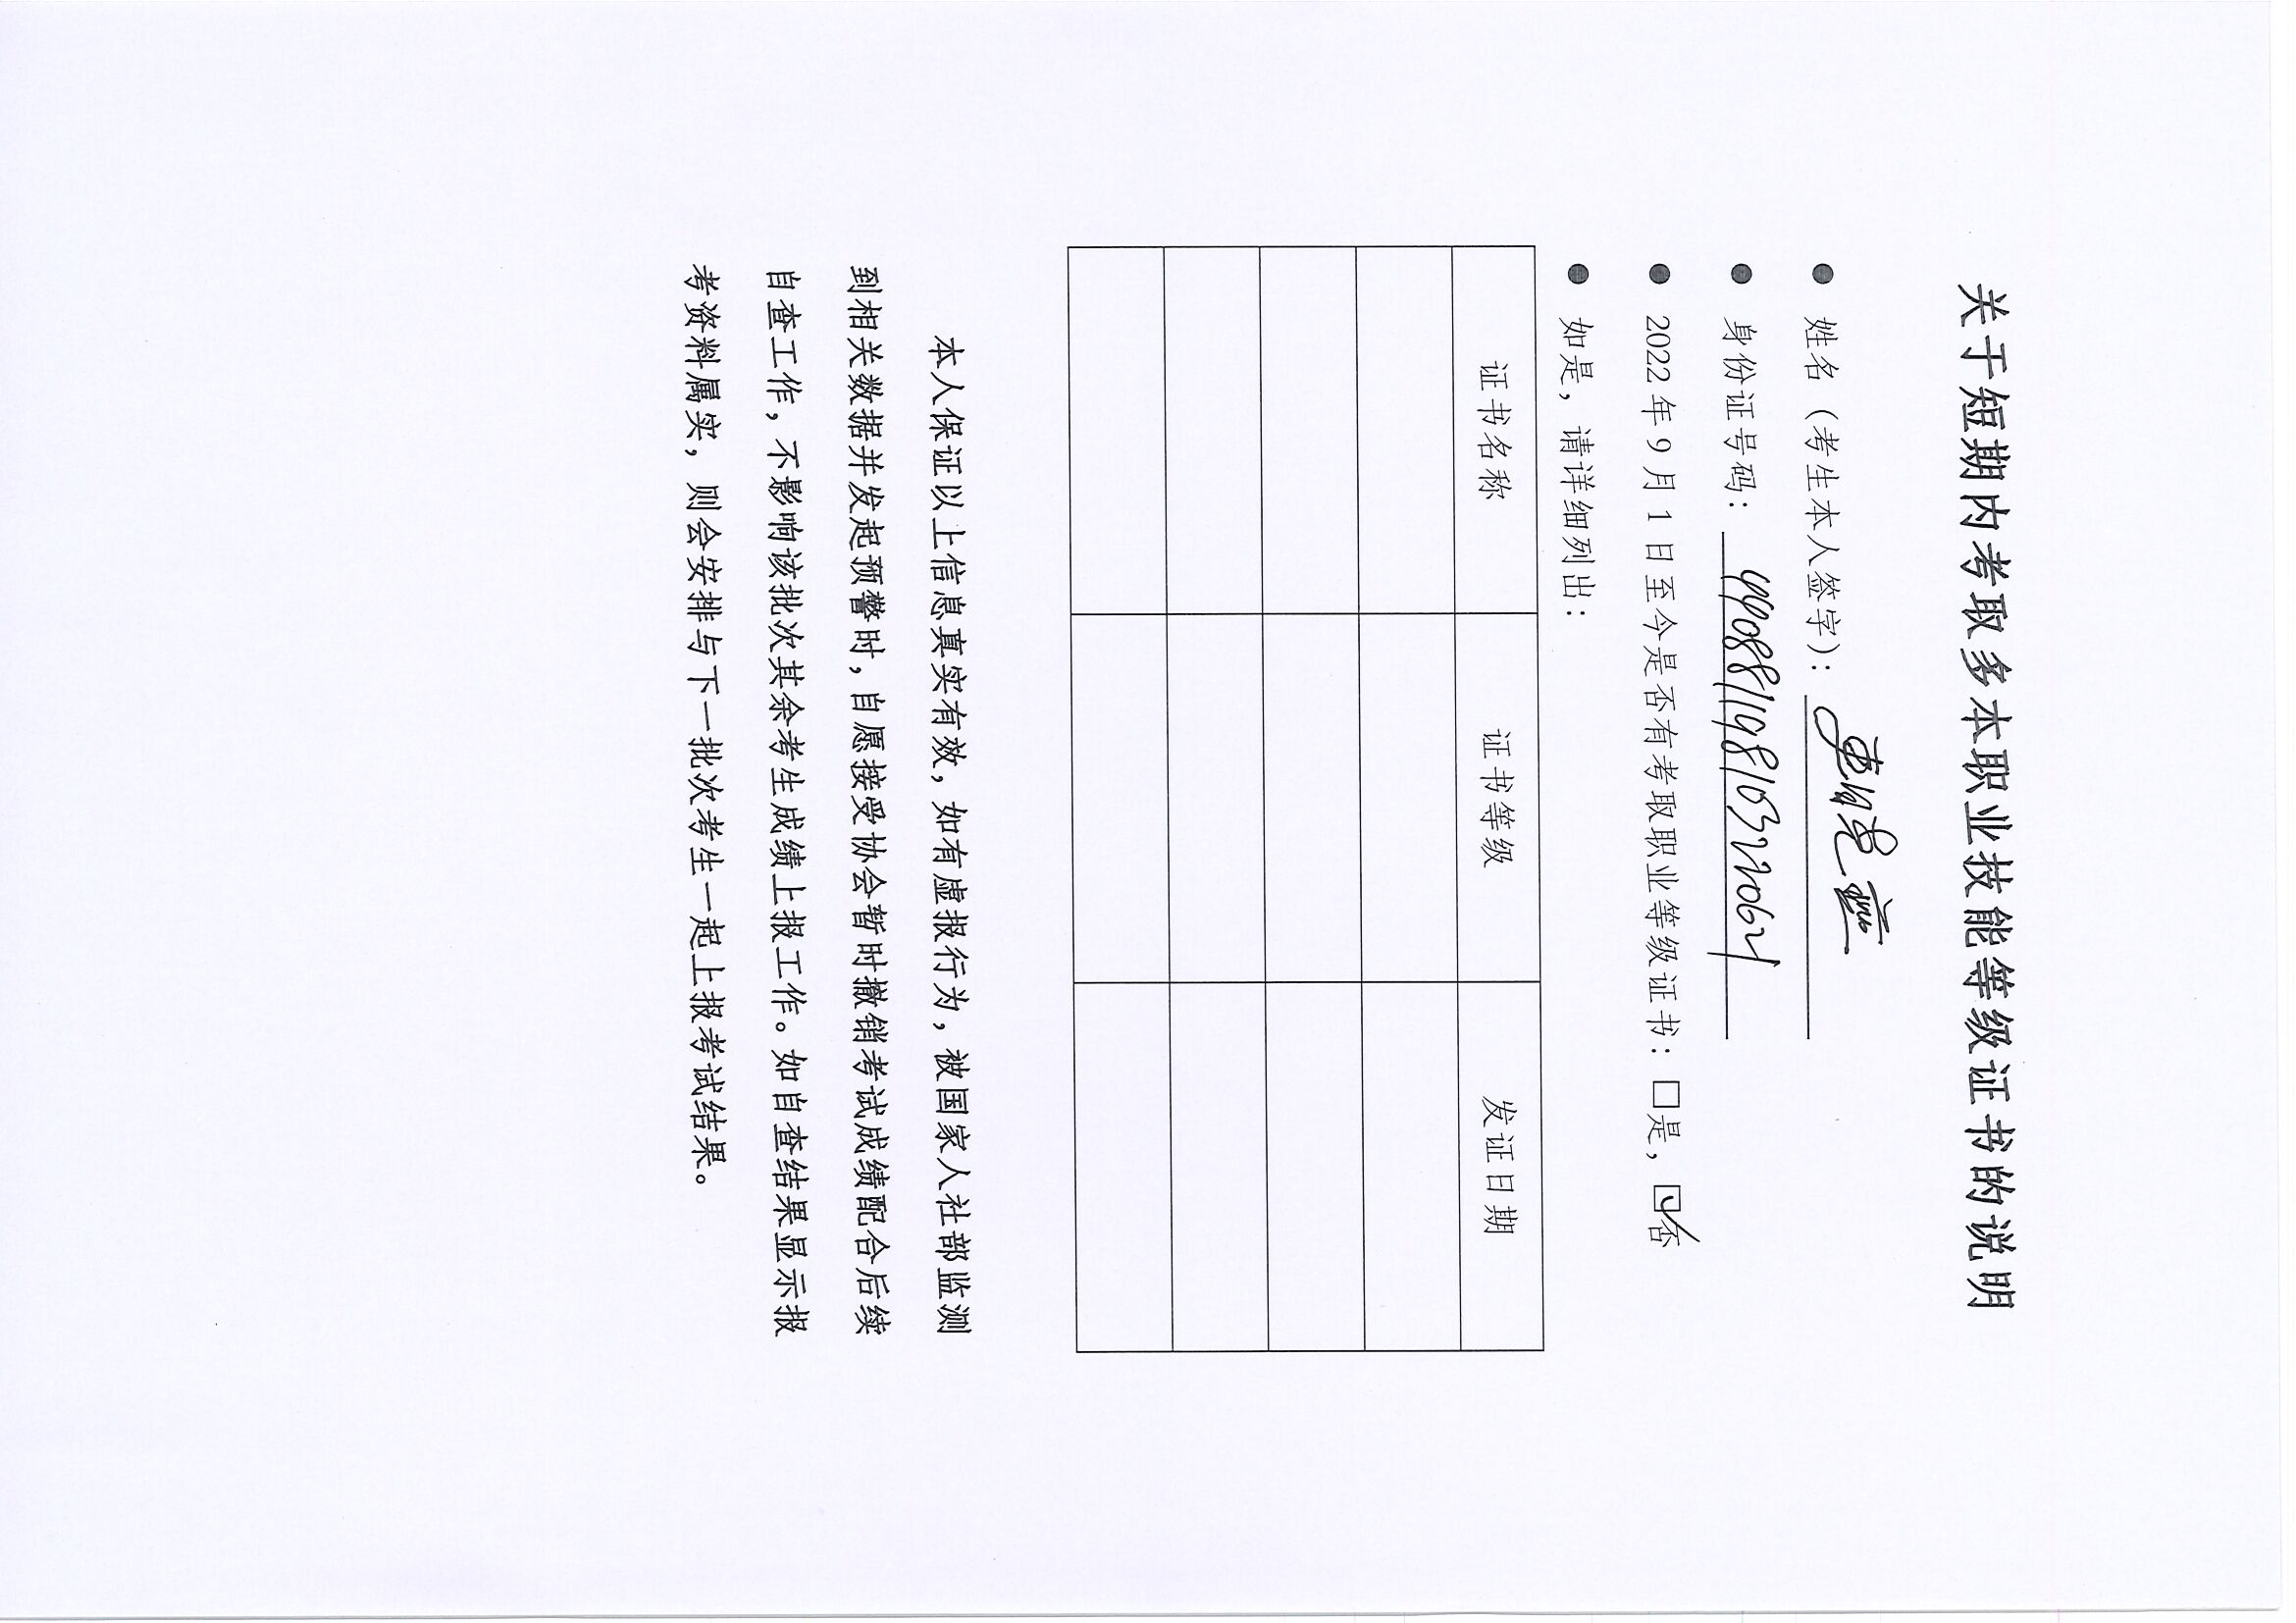 关于短期内考取多本职业技能等级证书的说明
● 姓名（考生本人签字）：
● 身份证号码： 440881198103220621
● 2022 年 9 月 1 日至今是否有考取职业等级证书：□是，☑否
● 如是，请详细列出：
证书名称 证书等级 发证日期
本人保证以上信息真实有效，如有虚报行为，被国家人社部监测
到相关数据并发起预警时，自愿接受协会暂时撤销考试成绩配合后续
自查工作，不影响该批次其余考生成绩上报工作。如自查结果显示报
考资料属实，则会安排与下一批次考生一起上报考试结果。